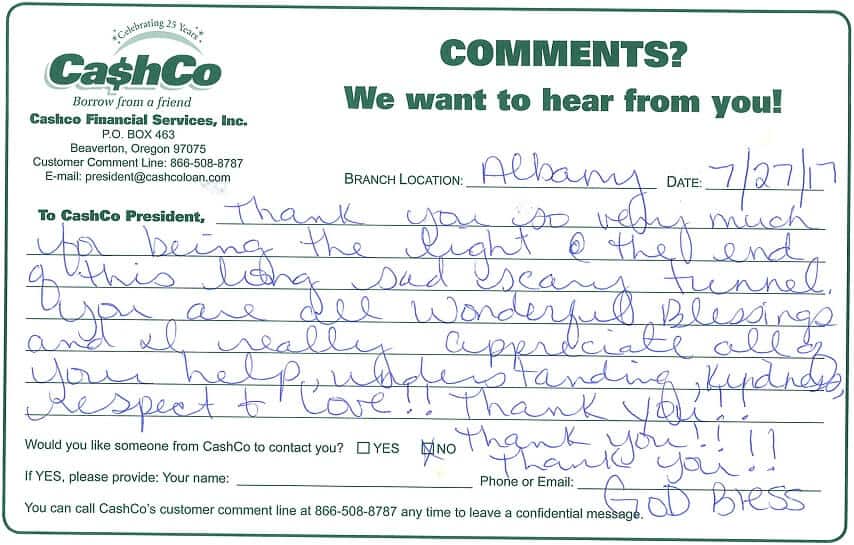 Celebrating 25 Years
Ca$hCo
Borrow from a friend
Cashco Financial Services, Inc.
P.O. BOX 463
Beaverton, Oregon 97075
Customer Comment Line: 866-508-8787
E-mail: president@cashcoloan.com
COMMENTS?
We want to hear from you!
BRANCH LOCATION: Albany DATE: 7/27/17
To CashCo President, Thank you so very much
for being the light @ the end
of this long sad scary tunnel.
You are all wonderful Blessings
and I really appreciate all of
your help, understanding, Kindness,
Respect & Love!! Thank you!!
Would you like someone from CashCo to contact you? YES NO Thank you!!
Thank you!!
If YES, please provide: Your name: Phone or Email: GOD Bless
You can call CashCo's customer comment line at 866-508-8787 any time to leave a confidential message.